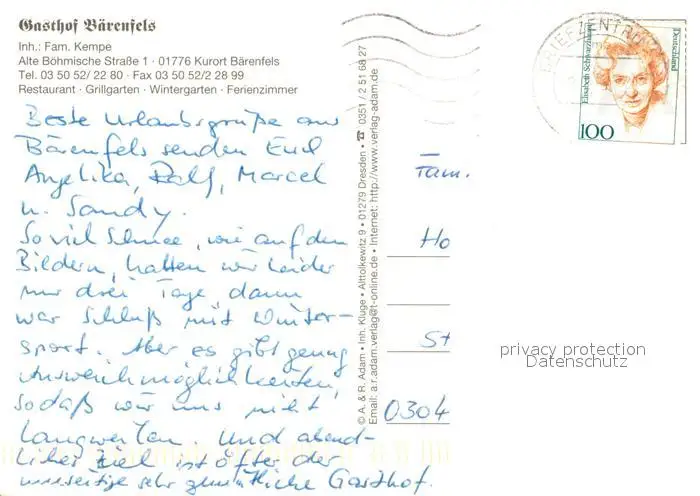 Gasthof Bärenfels
Inh.: Fam. Kempe
Alte Böhmische Straße 1 · 01776 Kurort Bärenfels
Tel. 03 50 52/ 22 80 · Fax 03 50 52/2 28 99
Restaurant · Grillgarten · Wintergarten · Ferienzimmer
Beste Urlaubsgrüße aus
Bärenfels senden Euch
Angelika, Ralf, Marcel
u. Sandy.
Soviel Schnee, wie auf den
Bildern, hatten wir leider
nur drei Tage, dann
war Schluß mit Winter-
sport. Aber es gibt genug
Ausweichmöglichkeiten,
sodaß wir uns nicht
langweilen. Und abend-
liches Ziel ist öfter der
sehr gemütliche Gasthof.
© A. & R. Adam • Inh. Kluge • Alttolkewitz 9 • 01279 Dresden • ☎ 0351 / 2 51 58 27
Email: a.r.adam.verlag@t-online.de • Internet: http://www.verlag-adam.de
BRIEFZENTRUM
Elisabeth Schwarzhaupt
Deutschland
100
Fam.
Ho
St
0304
privacy protection
Datenschutz